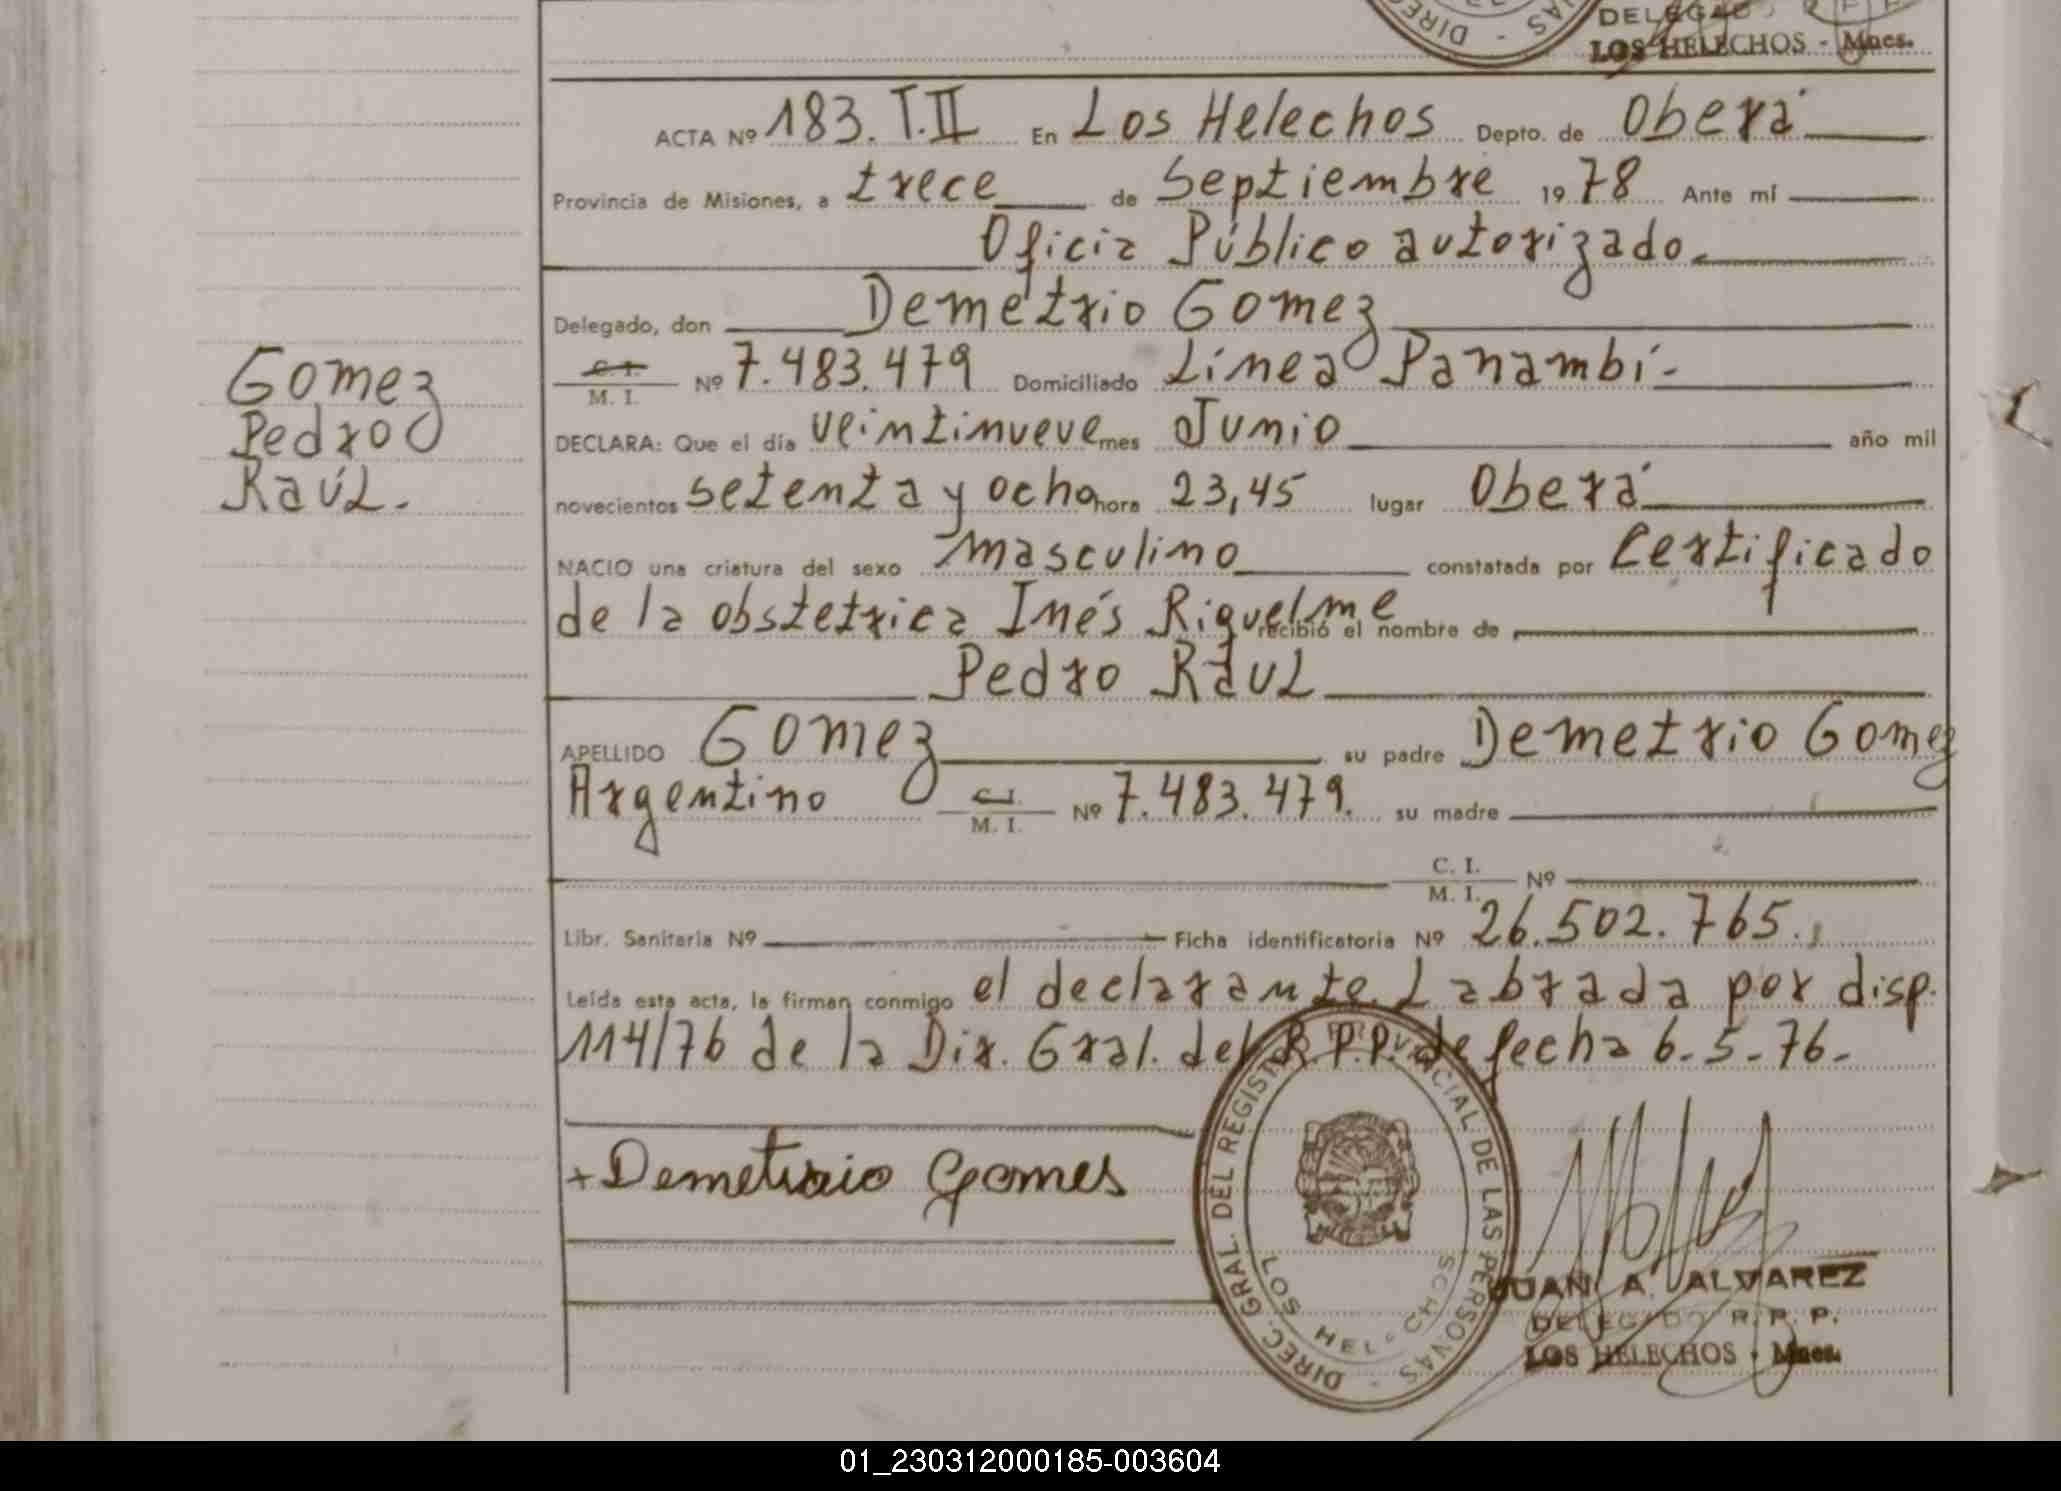 DIREC
NAS -
DELEGADO R. P. P.
LOS HELECHOS - Mnes.
ACTA Nº 183. T.II En Los Helechos Depto. de Oberá
Provincia de Misiones, a trece de Septiembre 1978 Ante mí
Oficia Público autorizado.
Delegado, don Demetrio Gomez
C. I. / M. I. Nº 7.483.479 Domiciliado Línea Panambí-
DECLARA: Que el día veintinueve mes Junio año mil
novecientos setenta y ocho hora 23,45 lugar Oberá
NACIO una criatura del sexo masculino constatada por Certificado
de la obstetrica Inés Riquelme recibió el nombre de
Pedro Raul
APELLIDO Gomez su padre Demetrio Gomez
Argentino C. I. / M. I. Nº 7.483.479. su madre
C. I. / M. I. Nº
Libr. Sanitaria Nº Ficha identificatoria Nº 26.502.765.
Leída esta acta, la firman conmigo el declarante. Labrada por disp.
114/76 de la Dir. Gral. del R.P.P. de fecha 6-5-76-
+ Demetrio Gomes
Gomez
Pedro
Raúl.
DIREC. GRAL. DEL REGISTRO PROVINCIAL DE LAS PERSONAS -
LOS HELECHOS
JUAN A. ALVAREZ
DELEGADO R. P. P.
LOS HELECHOS - Mnes.
01_230312000185-003604